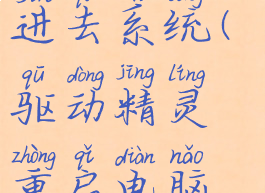 进去系统(
qū dòng jīng líng
驱动精灵
zhòng qǐ diàn nǎo
重启电脑